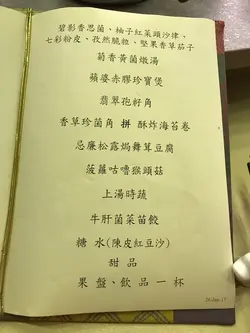 碧影香思菌、柚子紅菜頭沙律、
七彩粉皮、孜然脆粒、堅果香草茄子
菊香黃菌燉湯
蘋婆赤膠珍寶煲
翡翠孢籽角
香草珍菌角 拼 酥炸海苔卷
忌廉松露焗舞茸豆腐
菠蘿咕嚕猴頭菇
上湯時蔬
牛肝菌菜苗餃
糖 水(陳皮紅豆沙)
甜 品
果 盤、飲 品 一 杯